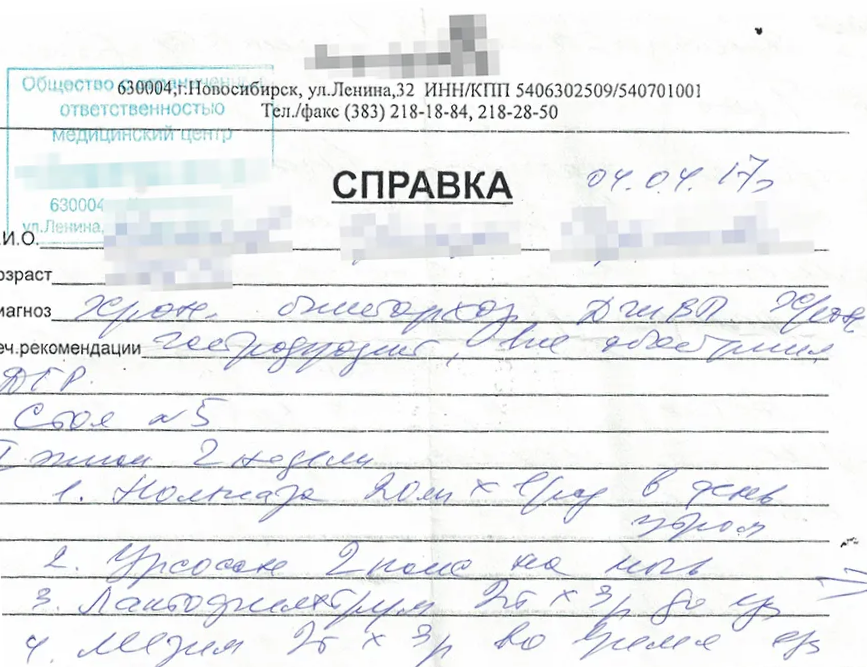 630004,г.Новосибирск, ул.Ленина,32 ИНН/КПП 5406302509/540701001
Тел./факс (383) 218-18-84, 218-28-50
Общество с ограниченной
ответственностью
медицинский центр
630004
ул.Ленина,
СПРАВКА 04.04.17г
.И.О.
озраст
иагноз Хрон. ДЖВП. Хрон
еч.рекомендации гастродуоденит, вне обострения
ДГР.
Стол №5
I этап 2 недели
1. Нольпаза 20мг х 1 раз в день
утром
2. Урсосан 2 капс на ночь
3. 2т х 3р до еды
4. Мезим 2т х 3р во время еды